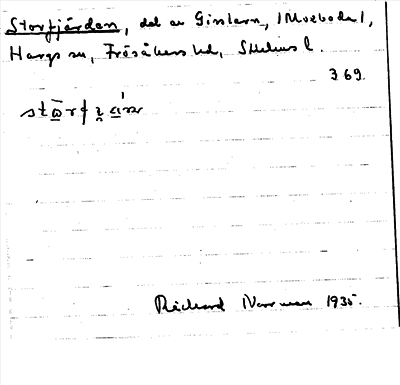 Storfjärden, del av Gisslaren, (Moeboda),
Hargs sn, Frösåkers hd, Sthlms l.
369.
Richard Norrman 1935.